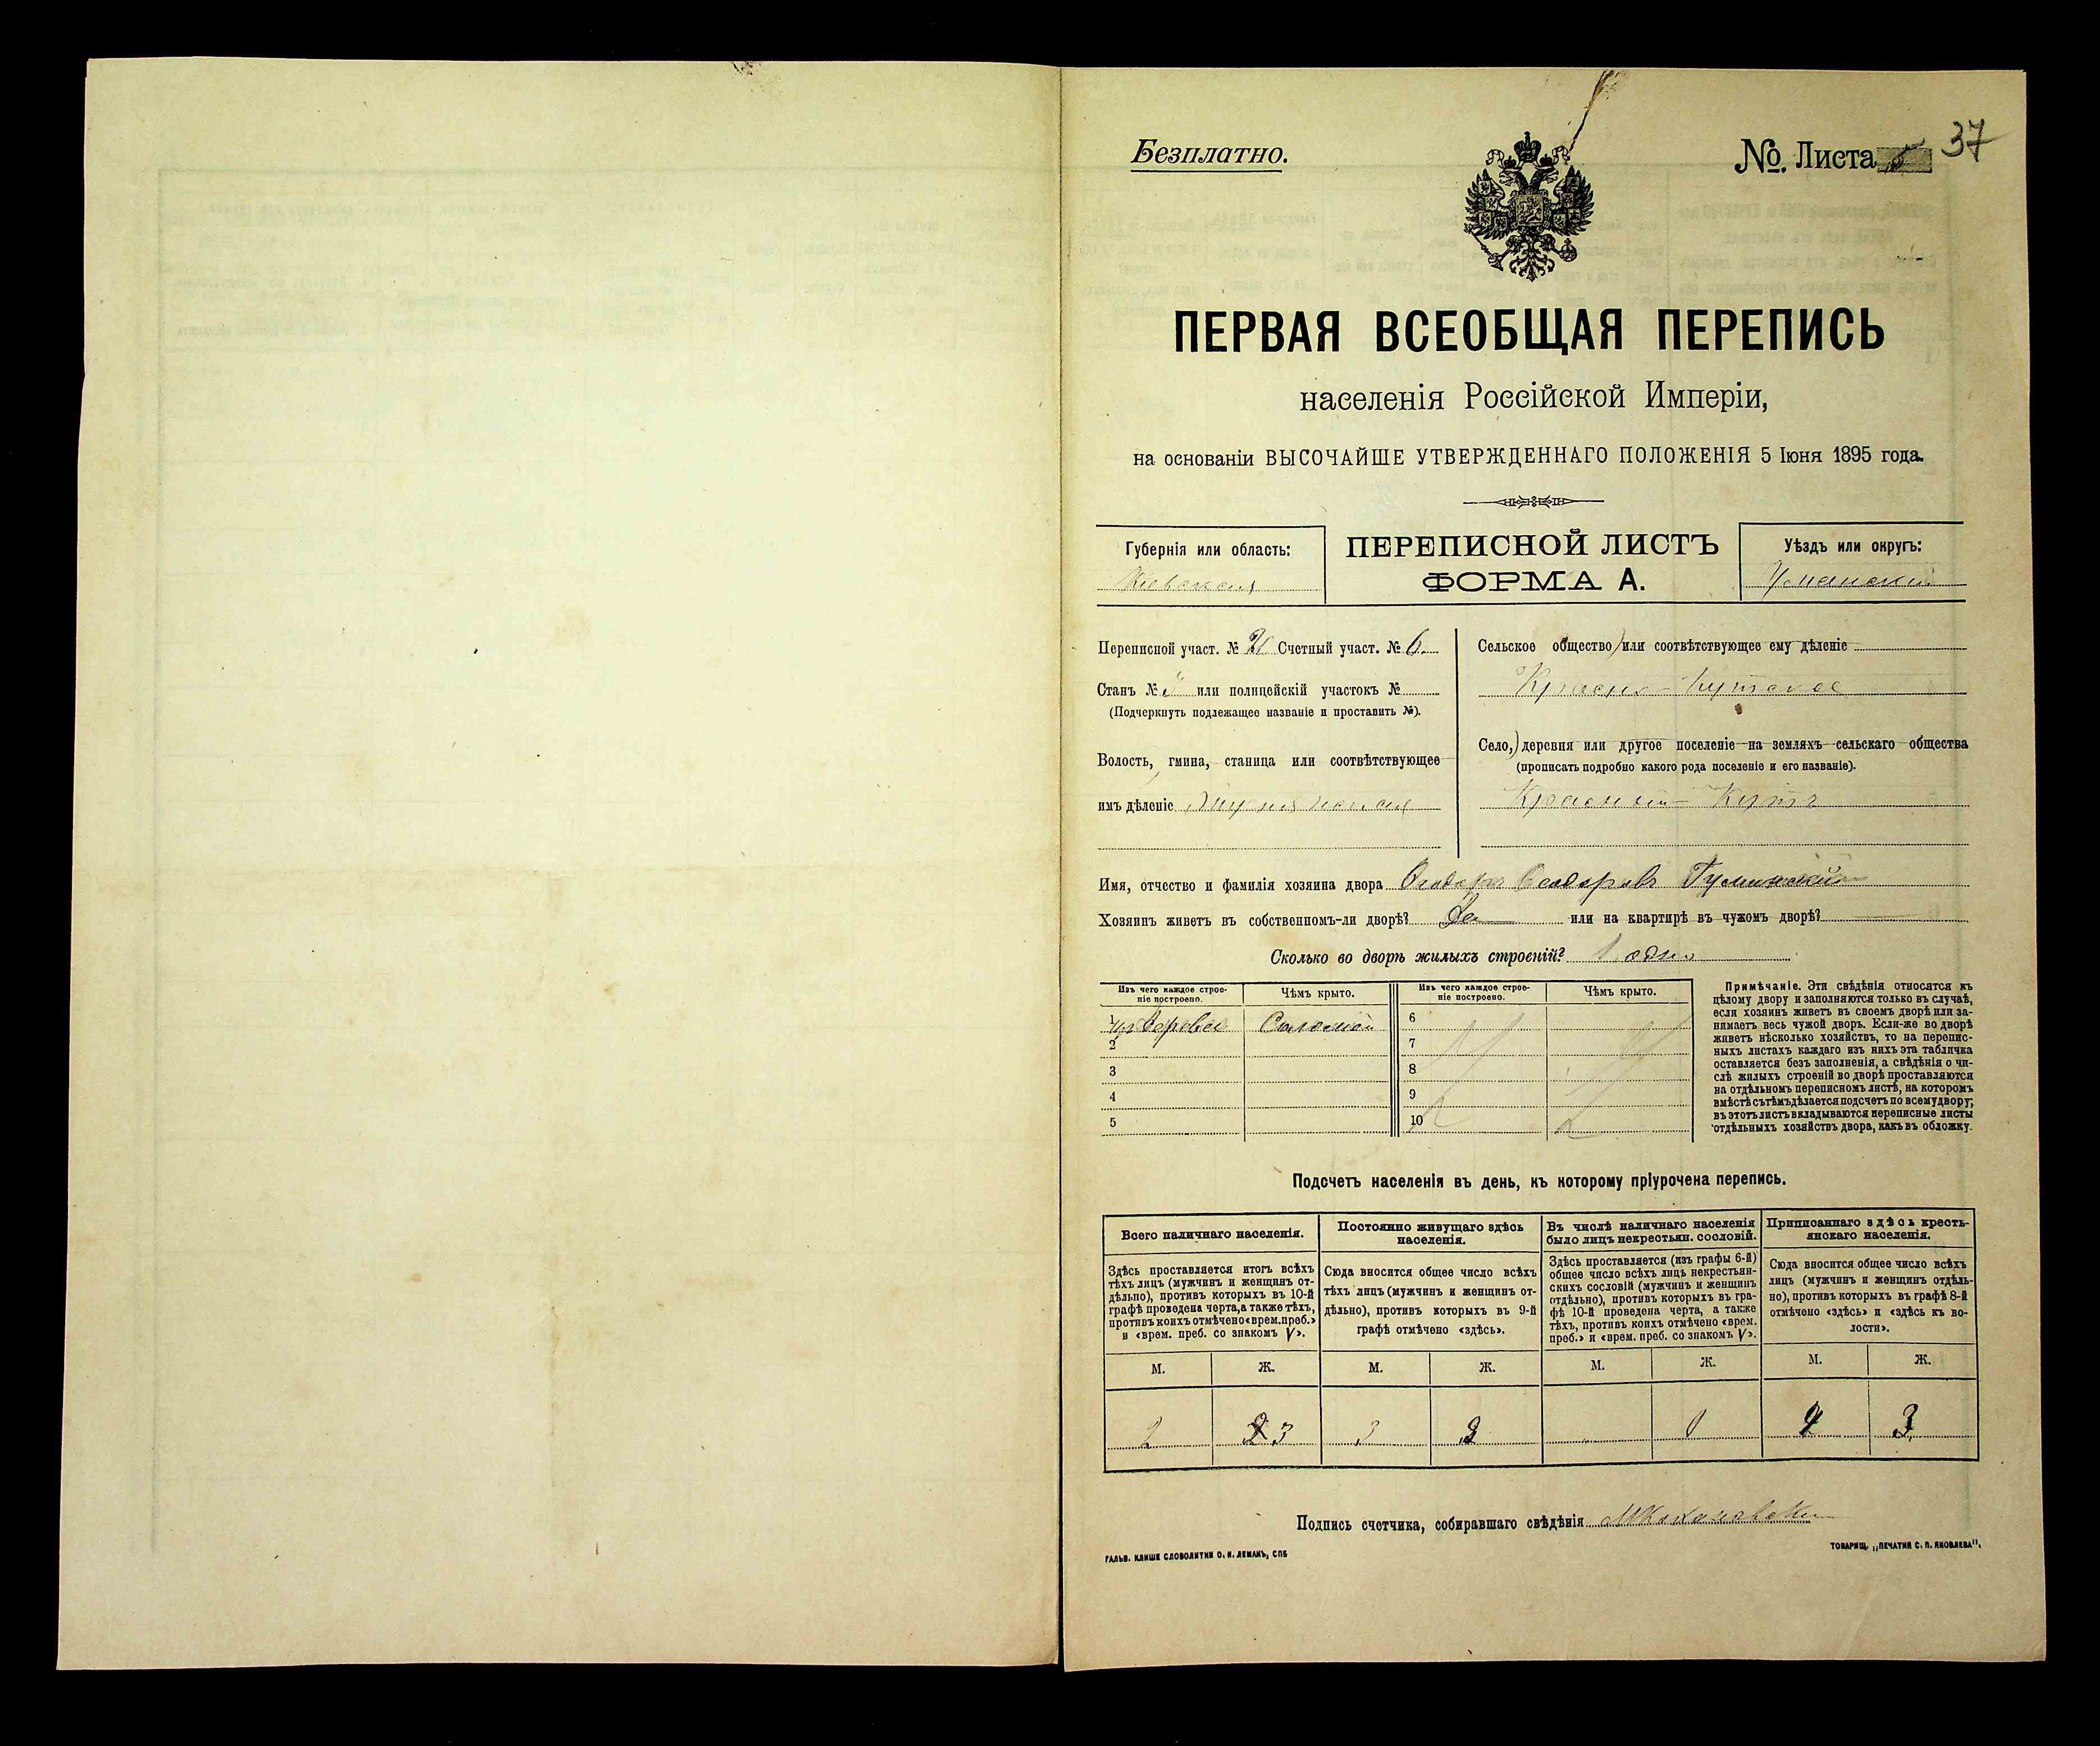 Безплатно.
No. Листа 5 37
ПЕРВАЯ ВСЕОБЩАЯ ПЕРЕПИСЬ
населенія Россійской Имперіи,
на основаніи ВЫСОЧАЙШЕ УТВЕРЖДЕННАГО ПОЛОЖЕНІЯ 5 Іюня 1895 года.
Губернія или область:
Кіевская
ПЕРЕПИСНОЙ ЛИСТЪ
ФОРМА А.
Уѣздъ или округъ:
Уманскій
Переписной участ. № Счетный участ. № 6.
Станъ № или полицейскій участокъ №
(Подчеркнуть подлежащее названіе и проставить №).
Волость, гмина, станица или соотвѣтствующее
имъ дѣленіе
Сельское общество или соотвѣтствующее ему дѣленіе
Красно-Кутское
Село, деревня или другое поселеніе на земляхъ сельскаго общества
(прописать подробно какого рода поселеніе и его названіе).
Красный-Кутъ
Имя, отчество и фамилія хозяина двора Феодоръ Феодоровъ Гуминскій
Хозяинъ живетъ въ собственномъ-ли дворѣ? Да или на квартирѣ въ чужомъ дворѣ?
Сколько во дворѣ жилыхъ строеній? 1 одно
Изъ чего каждое строеніе построено.
Чѣмъ крыто.
Изъ чего каждое строеніе построено.
Чѣмъ крыто.
1 изъ дерева Соломой 6
2 7
3 8
4 9
5 10
Примѣчаніе. Эти свѣдѣнія относятся къ
цѣлому двору и заполняются только въ случаѣ,
если хозяинъ живетъ въ своемъ дворѣ или за-
нимаетъ весь чужой дворъ. Если-же во дворѣ
живетъ нѣсколько хозяйствъ, то на перепис-
ныхъ листахъ каждаго изъ нихъ эта табличка
оставляется безъ заполненія, а свѣдѣнія о чи-
слѣ жилыхъ строеній во дворѣ проставляются
на отдѣльномъ переписномъ листѣ, на которомъ
вмѣстѣ съ тѣмъ дѣлается подсчетъ по всему двору;
въ этотъ листъ вкладываются переписные листы
отдѣльныхъ хозяйствъ двора, какъ въ обложку.
Подсчетъ населенія въ день, къ которому пріурочена перепись.
Всего наличнаго населенія.
Здѣсь проставляется итогъ всѣхъ
тѣхъ лицъ (мужчинъ и женщинъ от-
дѣльно), противъ которыхъ въ 10-й
графѣ проведена черта, а также тѣхъ,
противъ коихъ отмѣчено «врем. преб.»
и «врем. преб. со знакомъ V».
Постоянно живущаго здѣсь
населенія.
Сюда вносится общее число всѣхъ
тѣхъ лицъ (мужчинъ и женщинъ от-
дѣльно), противъ которыхъ въ 9-й
графѣ отмѣчено «здѣсь».
Въ числѣ наличнаго населенія
было лицъ некрестьян. сословій.
Здѣсь проставляется (изъ графы 6-й)
общее число всѣхъ лицъ некрестьян-
скихъ сословій (мужчинъ и женщинъ
отдѣльно), противъ которыхъ въ гра-
фѣ 10-й проведена черта, а также
тѣхъ, противъ коихъ отмѣчено «врем.
преб.» и «врем. преб. со знакомъ V».
Приписаннаго здѣсь кресть-
янскаго населенія.
Сюда вносится общее число всѣхъ
лицъ (мужчинъ и женщинъ отдѣль-
но), противъ которыхъ въ графѣ 8-й
отмѣчено «здѣсь» и «здѣсь къ во-
лости».
М. Ж. М. Ж. М. Ж. М. Ж.
2 3 3 3 1 3
Подпись счетчика, собиравшаго свѣдѣнія
ГАЛЬВ. КЛИШЕ СЛОВОЛИТНИ О. И. ЛЕМАНЪ, СПБ
ТОВАРИЩ. „ПЕЧАТНЯ С. П. ЯКОВЛЕВА".